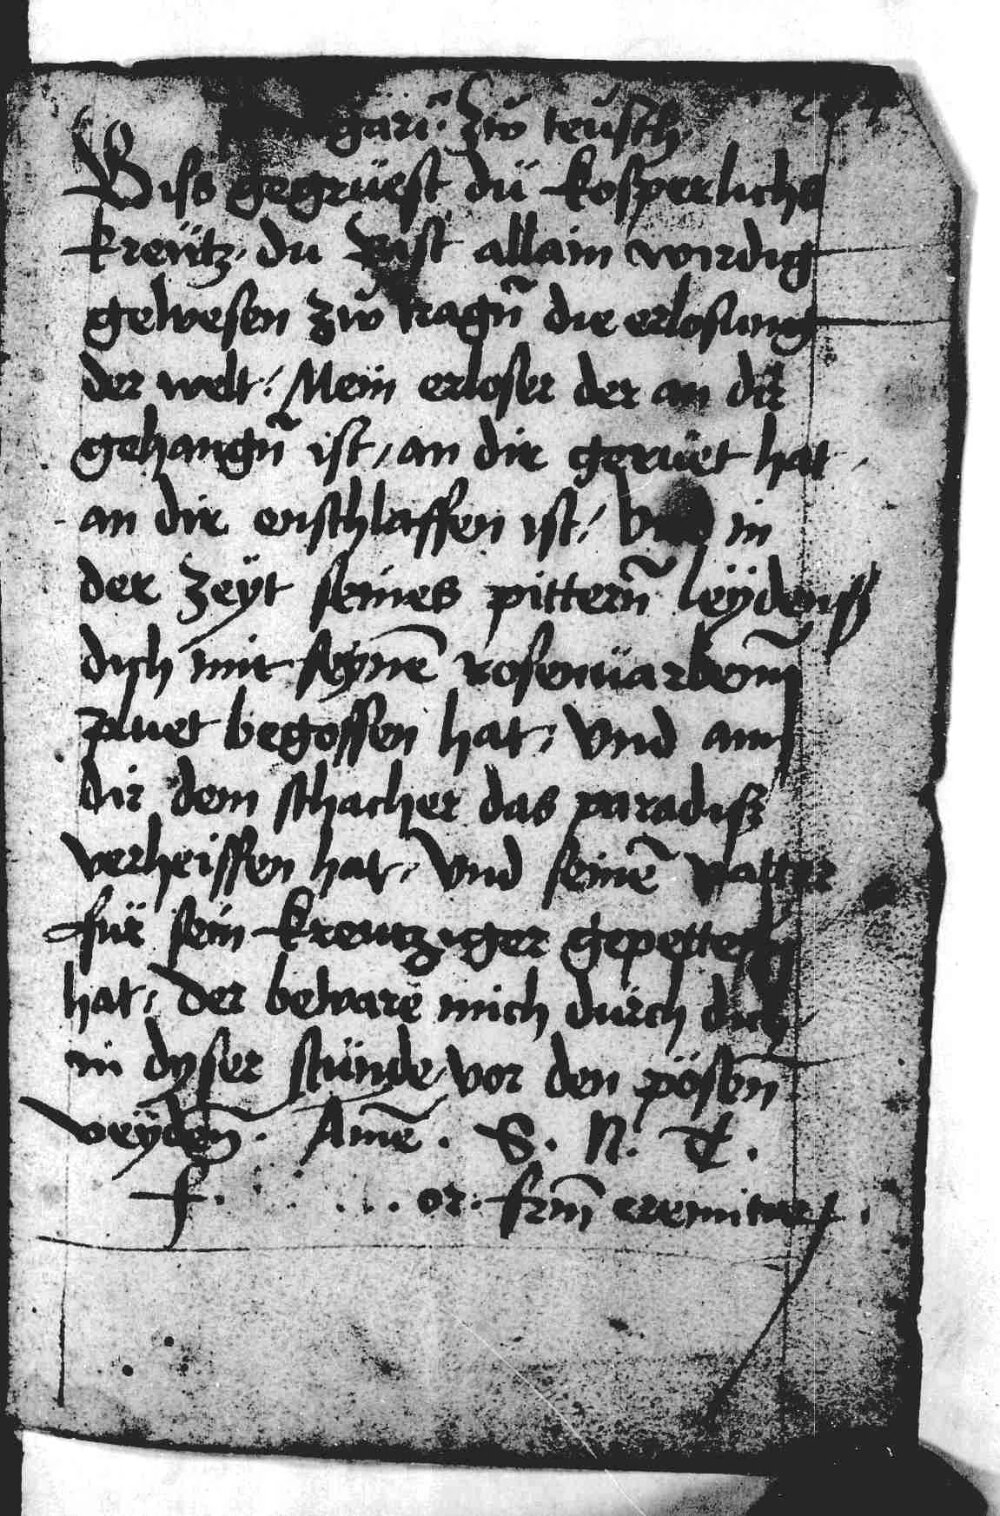 gari. zw teusch.
Biss gegrüest dü kosperlichs
kreütz. du bist allain wirdig
gewesen zw tragn̄ die erlosung
der welt / Mein erloser der an dir
gehangn̄ ist / an dir geruet hat
an dir enschlaffen ist / Vnd in
der zeÿt seines pittern̄ leÿdenß
dich mit seynē rosenuarbenn̄
pluet begossen hat / Vnd ann
dir dem schacher das paradiß
verheissen hat / Vnd seinē vatter
für sein kreutziger gepetten
hat / der beware mich durch dich
in dyser stunde vor den pösen
veÿden̄. Amē. S. N. T.
f. . . . . or. frm̄ eremitar.